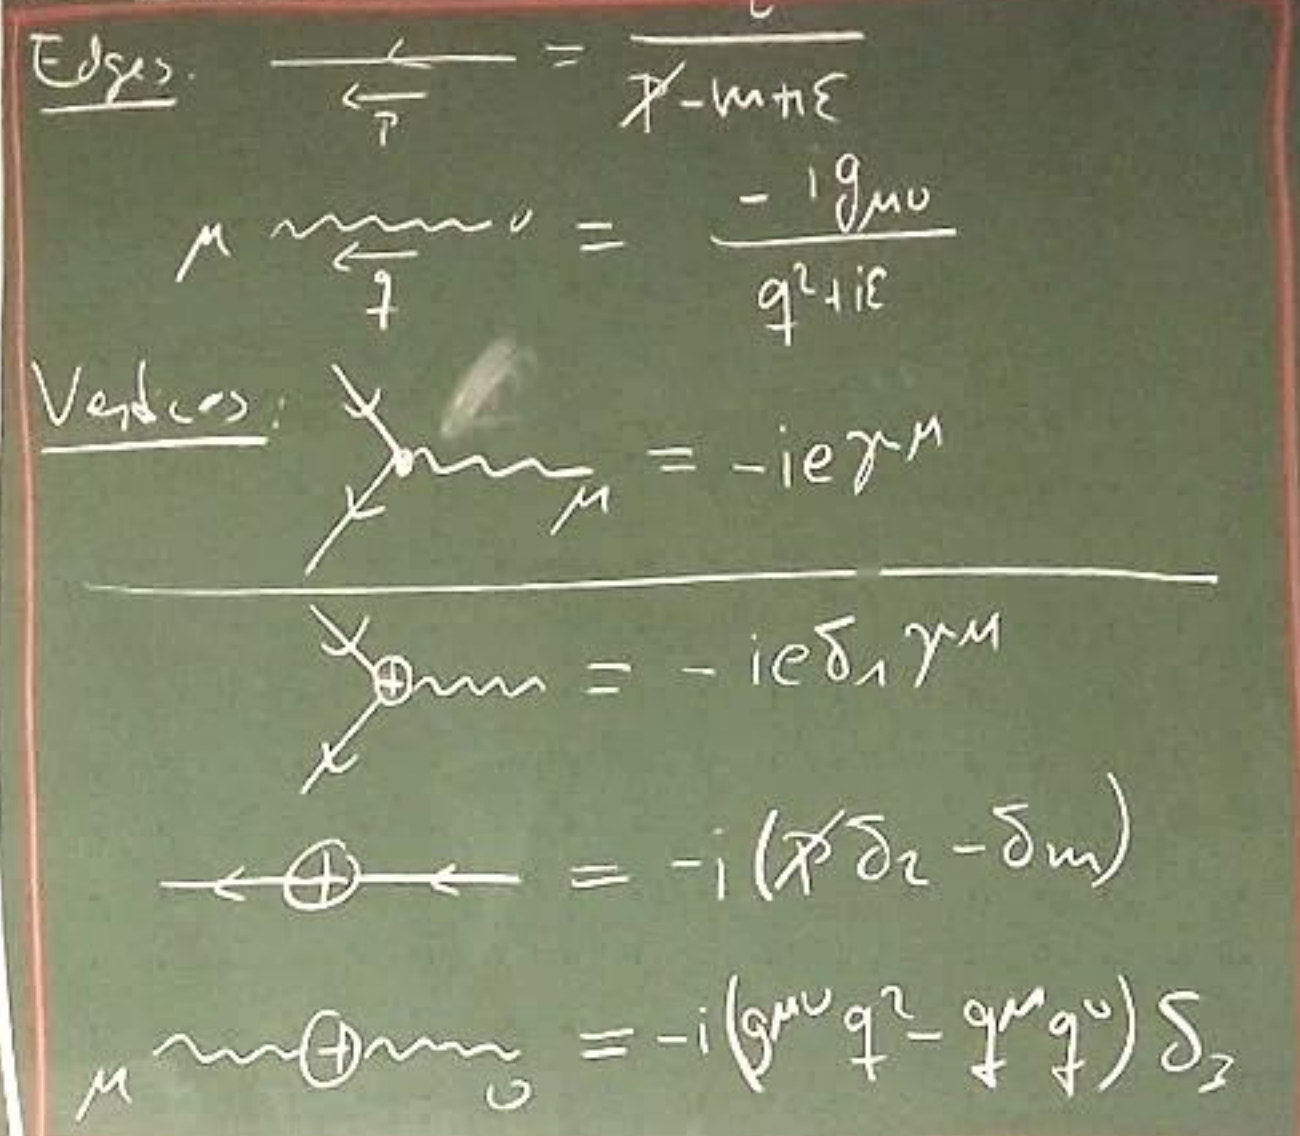 Edges. p = i / (p̸ - m + iε)
μ ν q = -i g_μν / (q² + iε)
Vertices: μ = -ieγ^μ
= -ieδ₁γ^μ
= -i(p̸δ₂ - δm)
μ ν = -i(g^μν q² - q^μ q^ν)δ₃